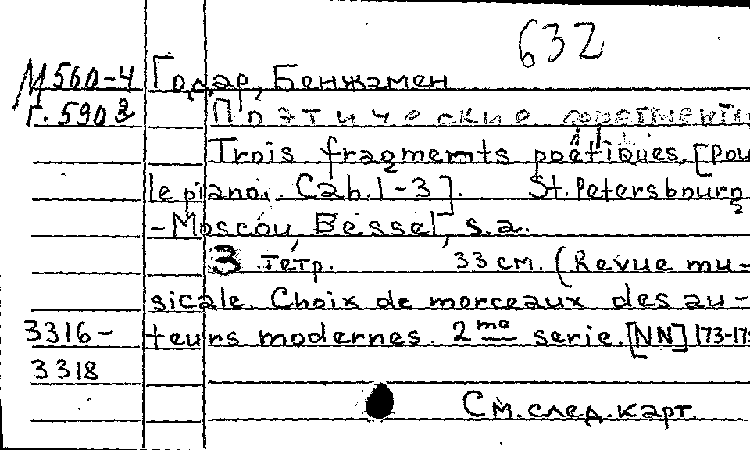 632
М560-4 Годар, Бенжамен
Г.590з Поэтические фрагменты
Trois fragments poétiques [pou
le piano. Cah. 1-3]. St. Petersbourg
-Moscou, Bessel, s.a.
3 тетр. 33 см. (Revue mu-
sicale. Choix de morceaux des au-
3316- teurs modernes. 2me serie. [NN] 173-175
3318
См. след. карт.